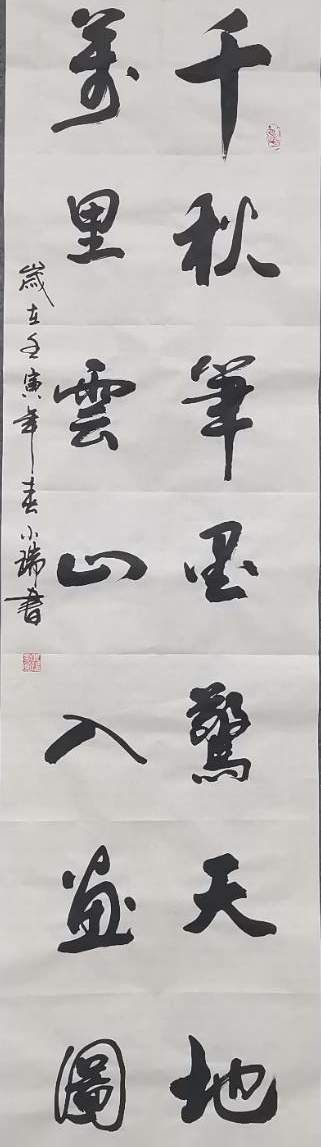 千秋筆墨驚天地
萬里雲山入畫圖
歲在壬寅年春小瑞書